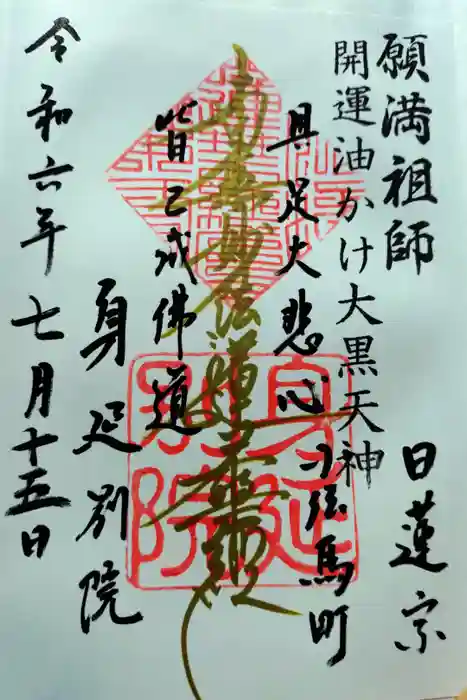 願満祖師
開運油かけ大黒天神
日蓮宗
具足大悲心
小伝馬町
南無妙法蓮華経
皆已成佛道
身延別院
令和六年七月十五日
身延別院